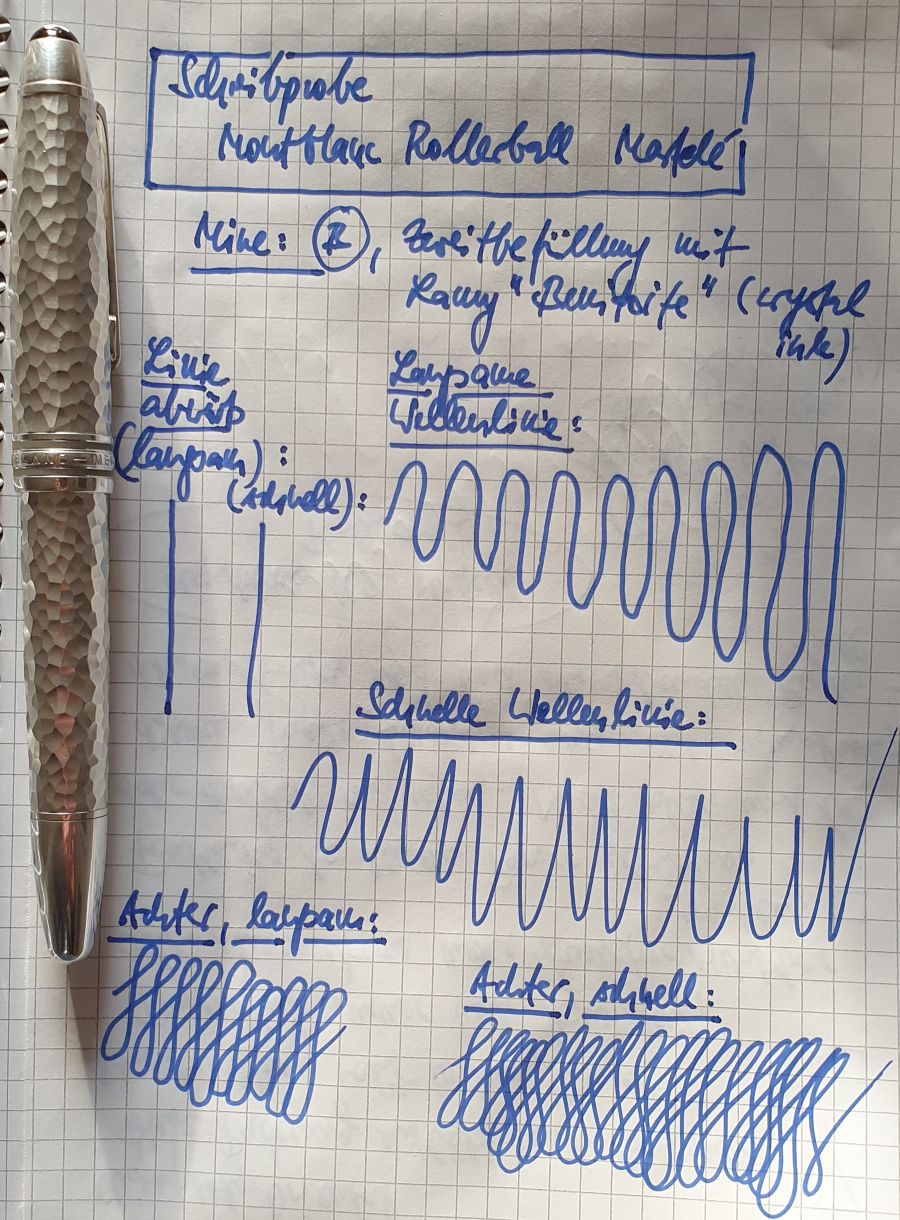 Schreibprobe
Montblanc Rollerball Martelé
Mine: B, Zweitbefüllung mit
Lamy "Benitoite" (crystal
ink)
Linie
abwärts
(langsam):
(schnell):
Langsame
Wellenlinie:
Schnelle Wellenlinie:
Achter, langsam:
Achter, schnell: